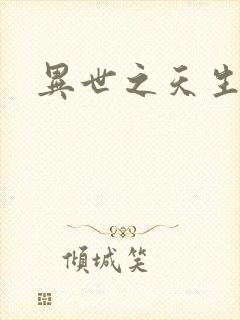 異世之天生
傾城笑